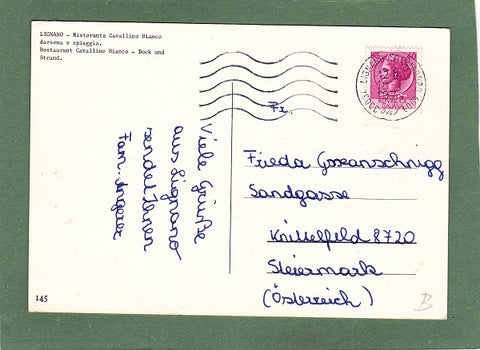 LIGNANO - Ristorante Cavallino Bianco
darsena e spiaggia.
Restaurant Cavallino Bianco - Dock und
Strand.
Viele Grüße
aus Lignano
sendet Ihnen
Fam. Angerer
Fr.
Frieda Gssanschnigg
Sandgasse
Knittelfeld 8720
Steiermark
(Österreich)
145
B
LIGNANO